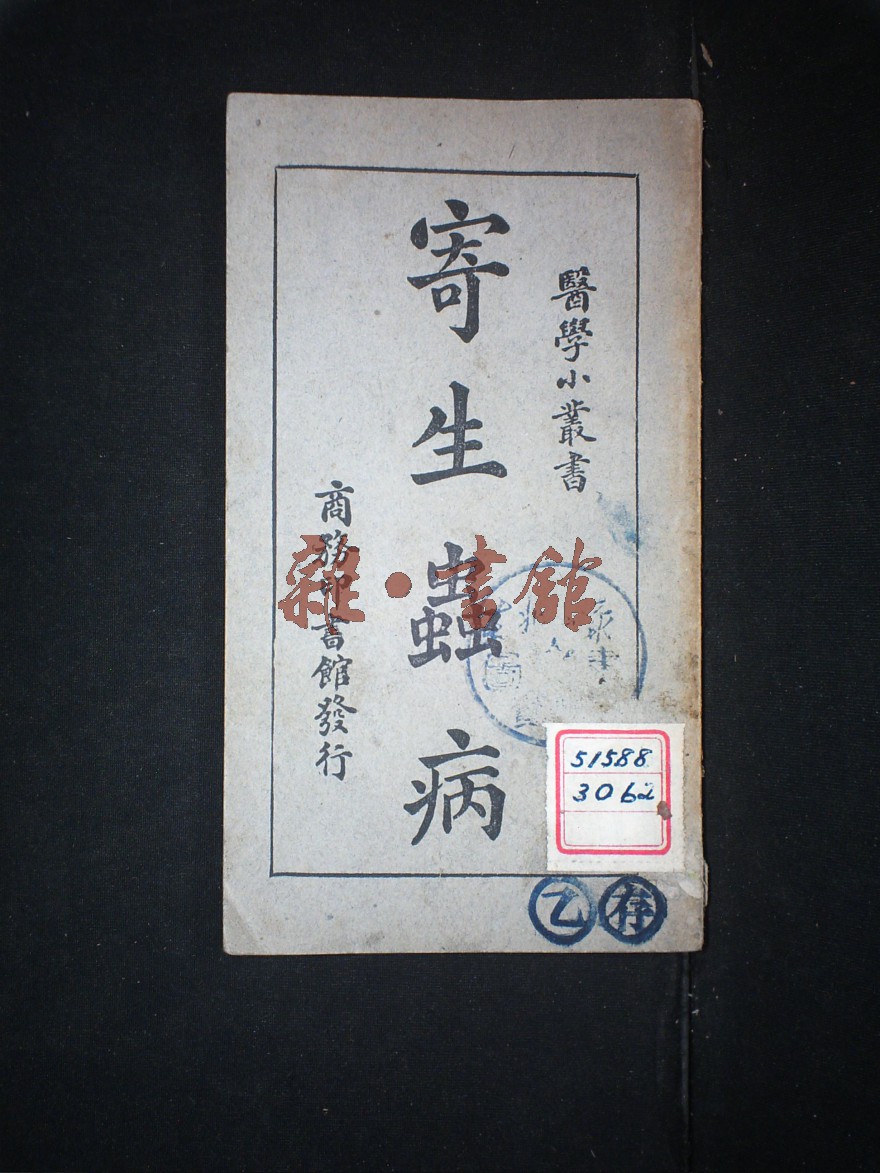 醫學小叢書
寄生蟲病
商務印書館發行
雜·書館
51588
3062
乙
存